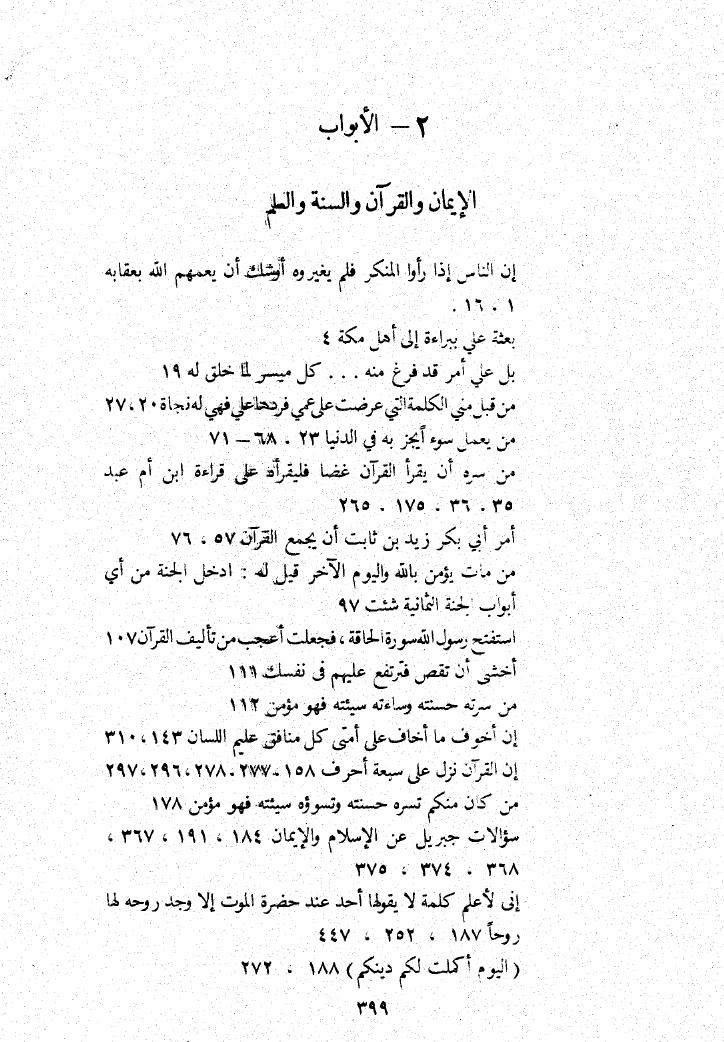 ٢ – الأبواب
الإيمان والقرآن والسنة والعلم
إن الناس إذا رأوا المنكر فلم يغيروه أوشك أن يعمهم الله بعقابه
١ ، ١٦ .
بعثة علي ببراءة إلى أهل مكة ٤
بل علي أمر قد فرغ منه . . . كل ميسر لما خلق له ١٩
من قبل مني الكلمة التي عرضت على عمي فردها علي فهي له نجاة ٢٠ ، ٢٧
من يعمل سوء آيجز به في الدنيا ٢٣ ، ٦٨ – ٧١
من سره أن يقرأ القرآن غضا فليقرأه على قراءة ابن أم عبد
٣٥ ، ٣٦ ، ١٧٥ ، ٢٦٥
أمر أبي بكر زيد بن ثابت أن يجمع القرآن ٥٧ ، ٧٦
من مات يؤمن بالله واليوم الآخر قيل له : ادخل الجنة من أي
أبواب الجنة الثمانية شئت ٩٧
استفتح رسول الله سورة الحاقة ، فجعلت أعجب من تأليف القرآن ١٠٧
أخشى أن تقص فترتفع عليهم فى نفسك ١١١
من سرته حسنته وساءته سيئته فهو مؤمن ١١٢
إن أخوف ما أخاف على أمتى كل منافق عليم اللسان ١٤٣ ، ٣١٠
إن القرآن نزل على سبعة أحرف ١٥٨ ، ٢٧٧ ، ٢٧٨ ، ٢٩٦ ، ٢٩٧
من كان منكم تسره حسنته وتسوؤه سيئته فهو مؤمن ١٧٨
سؤالات جبريل عن الإسلام والإيمان ١٨٤ ، ١٩١ ، ٣٦٧ ،
٣٦٨ ، ٣٧٤ ، ٣٧٥
إنى لأعلم كلمة لا يقولها أحد عند حضرة الموت إلا وجد روحه لها
روحاً ١٨٧ ، ٢٥٢ ، ٤٤٧
( اليوم أكملت لكم دينكم ) ١٨٨ ، ٢٧٢
٣٩٩